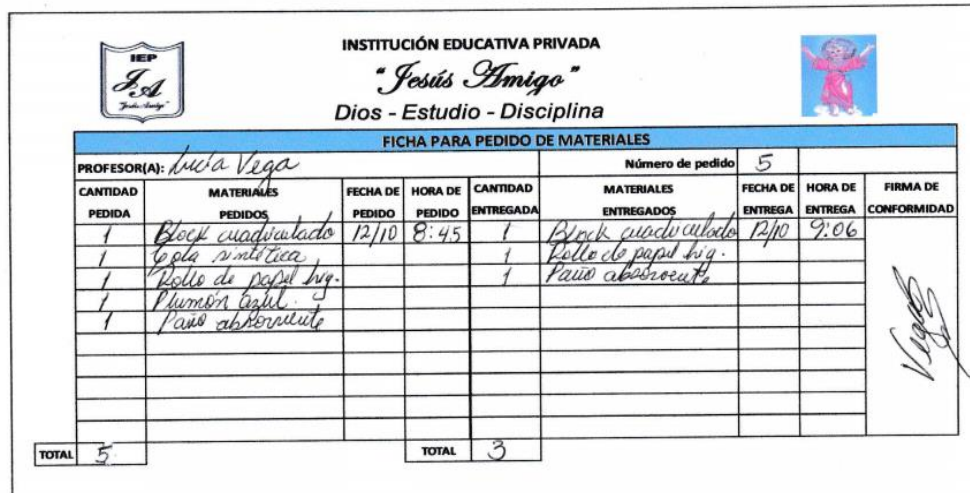 IEP
JA
"Jesús Amigo"
INSTITUCIÓN EDUCATIVA PRIVADA
"Jesús Amigo"
Dios - Estudio - Disciplina
FICHA PARA PEDIDO DE MATERIALES
PROFESOR(A): Lucía Vega Número de pedido 5
CANTIDAD PEDIDA MATERIALES PEDIDOS FECHA DE PEDIDO HORA DE PEDIDO CANTIDAD ENTREGADA MATERIALES ENTREGADOS FECHA DE ENTREGA HORA DE ENTREGA FIRMA DE CONFORMIDAD
1 Block cuadriculado 12/10 8:45 1 Block cuadriculado 12/10 9:06
1 Cola sintética 1 Rollo de papel hig.
1 Rollo de papel hig. 1 Paño absorvente
1 Plumón azul.
1 Paño absorvente
TOTAL 5 TOTAL 3